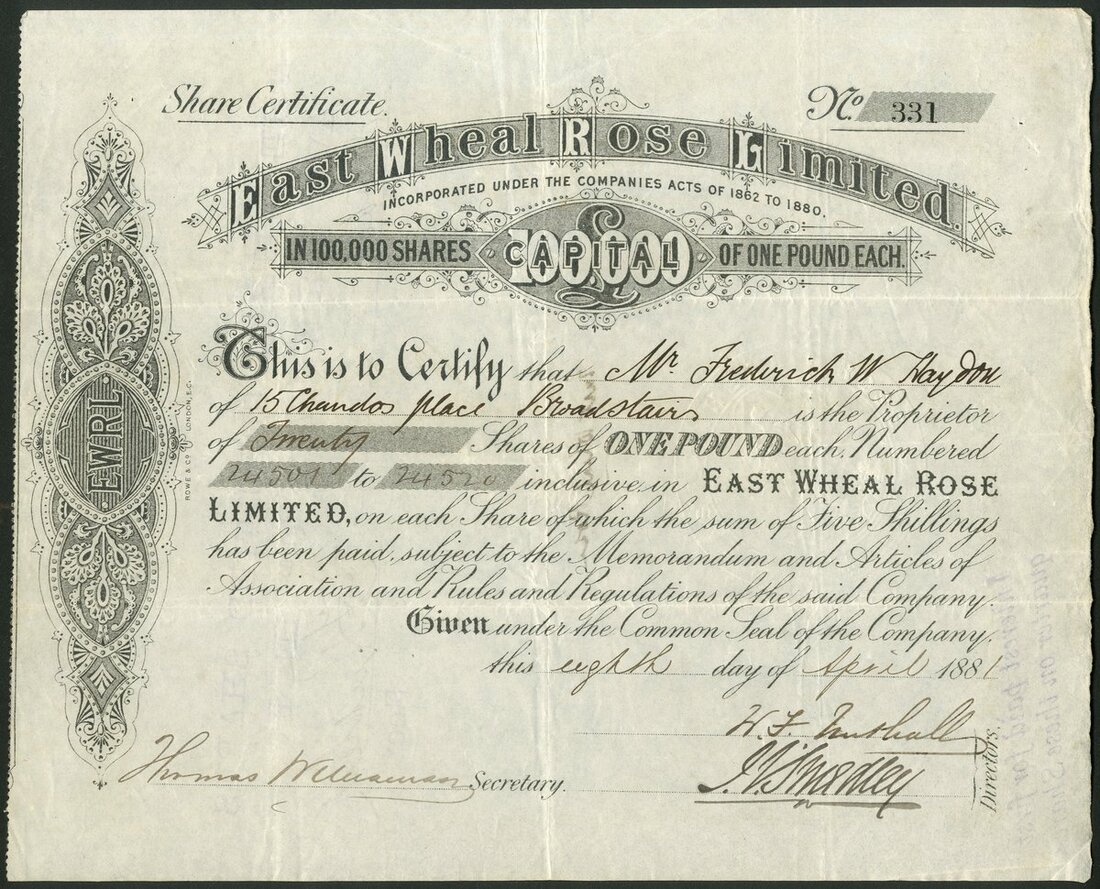 Share Certificate.
No. 331
East Wheal Rose Limited.
INCORPORATED UNDER THE COMPANIES ACTS OF 1862 TO 1880.
IN 100,000 SHARES CAPITAL £100,000 OF ONE POUND EACH.
This is to Certify that Mr Frederick W Haydon
of 15 Chandos place Broadstairs is the Proprietor
of Twenty Shares of ONE POUND each, Numbered
24501 to 24520 inclusive, in EAST WHEAL ROSE
LIMITED, on each Share of which the sum of Five Shillings
has been paid, subject to the Memorandum and Articles of
Association and Rules and Regulations of the said Company.
Given under the Common Seal of the Company,
this eighth day of April 1881
J. V. Smedley
Directors.
Thomas Secretary.
EWRL
ROWE & Co LONDON, E.C.